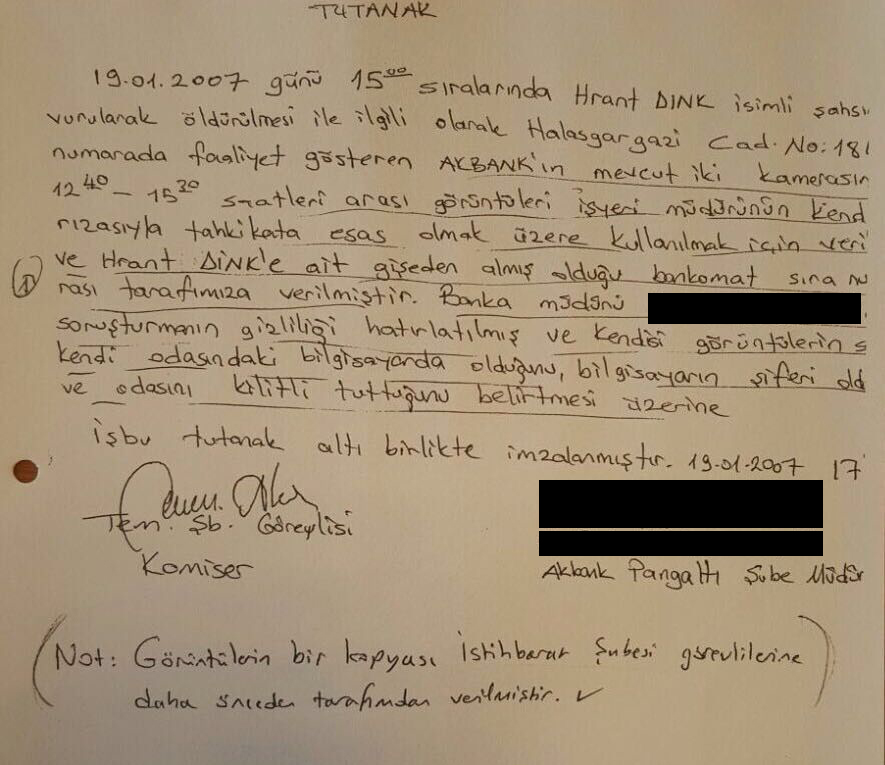 TUTANAK
19.01.2007 günü 15⁰⁰ sıralarında Hrant DİNK isimli şahsı
vurularak öldürülmesi ile ilgili olarak Halasgargazi Cad. No: 181
numarada faaliyet gösteren AKBANK'ın mevcut iki kamerasın
12⁴⁰ – 15³⁰ saatleri arası görüntüleri işyeri müdürünün kend
rızasıyla tahkikata esas olmak üzere kullanılmak için veri
ve Hrant DİNK'e ait gişeden almış olduğu bankomat sıra nu
1 rası tarafımıza verilmiştir. Banka müdürü
soruşturmanın gizliliği hatırlatılmış ve kendisi görüntülerin s
kendi odasındaki bilgisayarda olduğunu, bilgisayarın şifreli old
ve odasını kilitli tuttuğunu belirtmesi üzerine
işbu tutanak altı birlikte imzalanmıştır. 19.01.2007 17
Tem. Şb. Görevlisi
Komiser
Akbank Pangaltı Şube Müdür
(Not: Görüntülerin bir kopyası İstihbarat Şubesi görevlilerine
daha önceden tarafımdan verilmiştir. ✓)